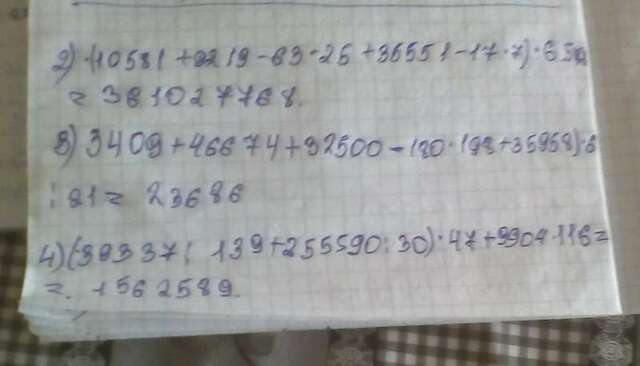 2) (10581 + 9219 - 63 - 26 + 36551 - 17 · 7) · 650
= 361027768.
3) 3409 + 46674 + 32500 - 180 · 198 + 35958) · 6
: 21 = 23686
4) (39337 : 139 + 255590 : 30) · 47 + 9904 · 116 =
= 1562589.